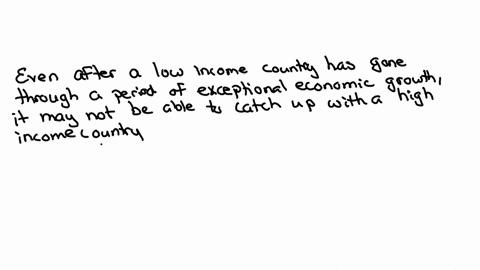 Even after a low income country has gone
through a period of exceptional economic growth,
it may not be able to catch up with a high
income country